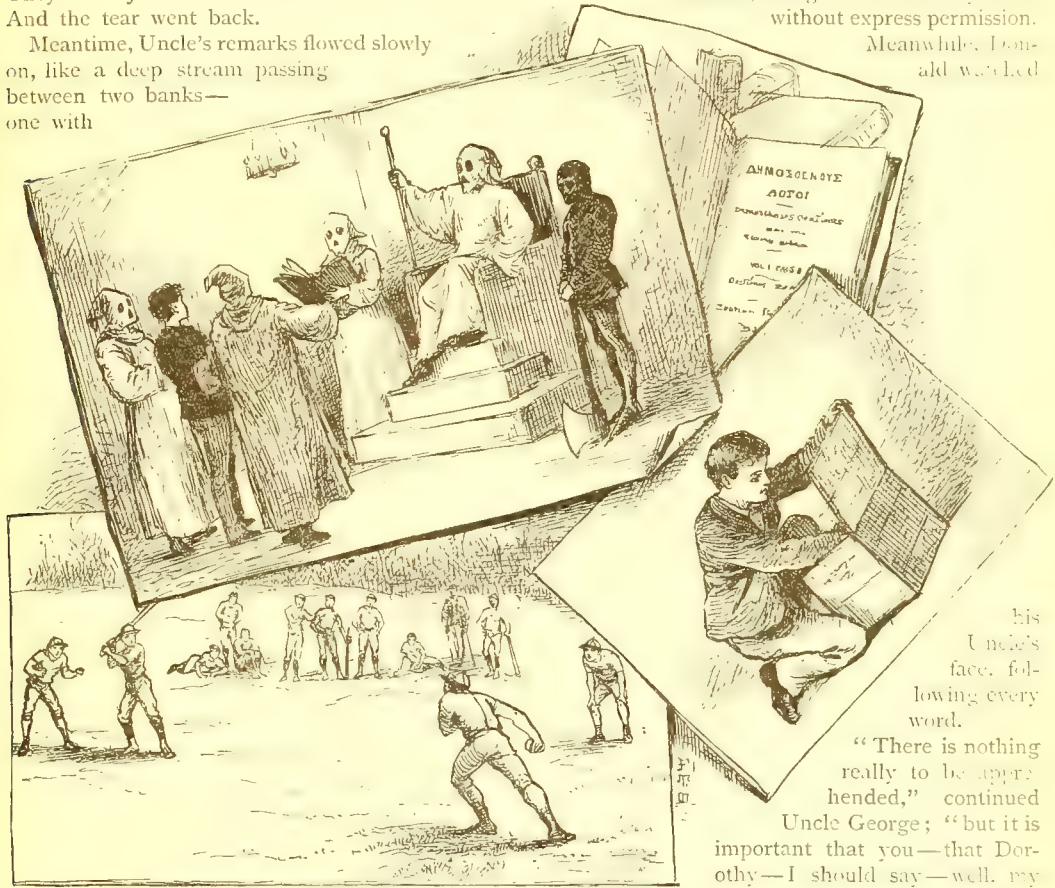 And the tear went back.
Meantime, Uncle's remarks flowed slowly
on, like a deep stream passing
between two banks—
one with
without express permission.
Meanwhile, Don-
ald watched
ΔΗΜΟΣΘΕΝΟΥΣ
ΛΟΓΟΙ
VOL I
his
Uncle's
face, fol-
lowing every
word.
“There is nothing
really to be appre-
hended,” continued
Uncle George; “but it is
important that you—that Dor-
othy—I should say—well, my